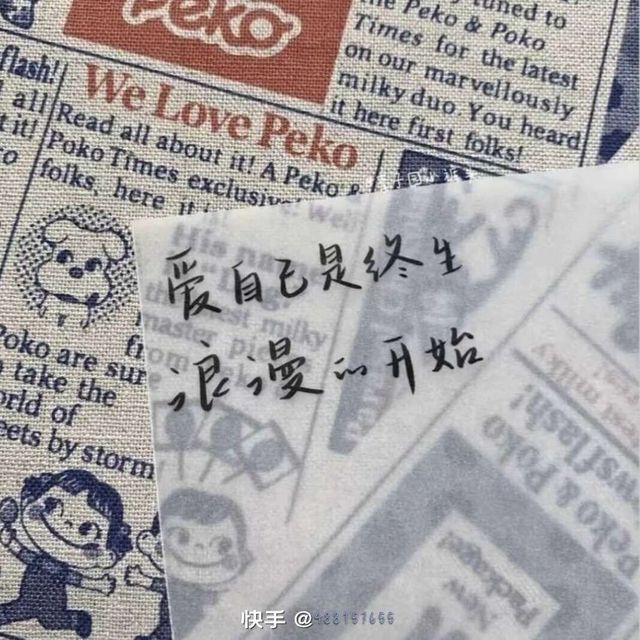 Peko
y tuned to
the Peko & Poko
Times for the latest
on our marvellously
milky duo. You heard
it here first folks!
flash!
all
it!
We Love Peko
Read all about it! A Peko &
Poko Times exclusive! Well
folks, here it i
His name
master pie
from
Poko are sur
take the
orld of
eets by storm
爱自己是终生
浪漫的开始
wsflash!
Peko & Poko
New
Package!
快手 @488157655